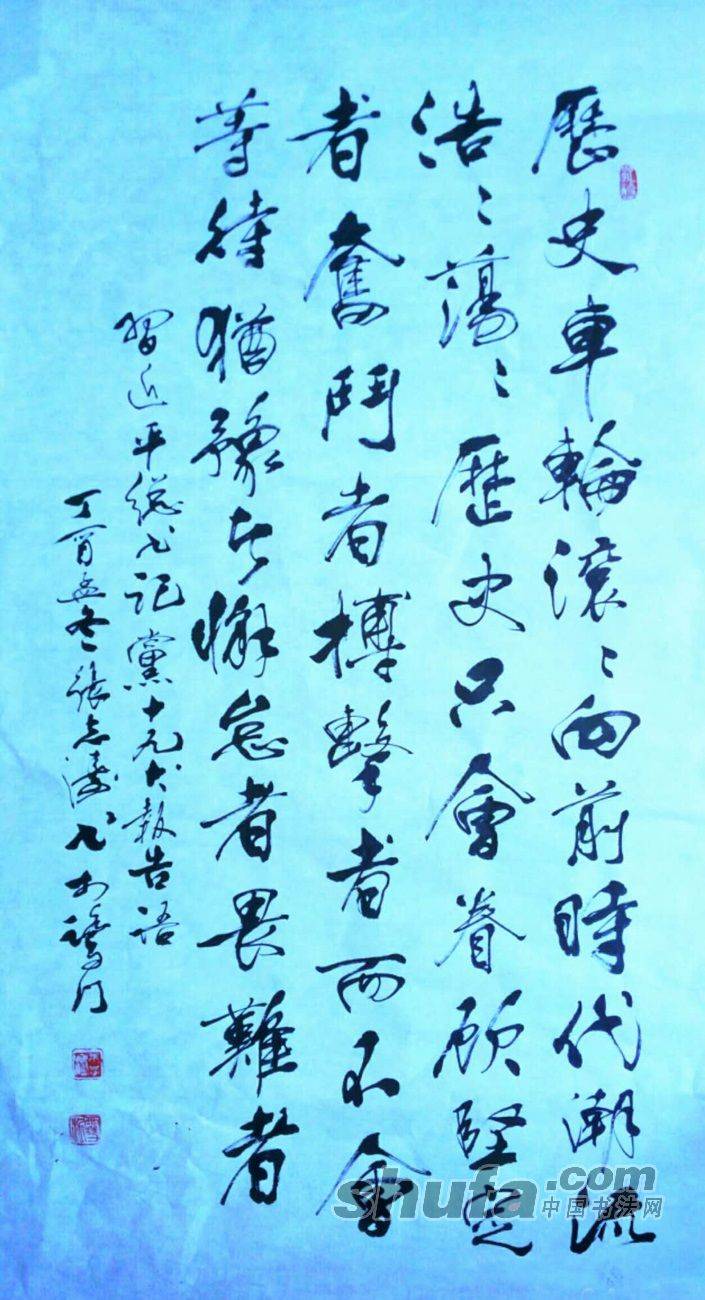 歷史車輪滾〻向前時代潮流
浩〻蕩〻歷史只會眷顧堅定
者奮鬥者搏擊者而不會
等待猶豫者懈怠者畏難者
習近平總书記黨十九大報告語
丁酉孟冬張志濤书於鷺门
shufa.com
中国书法网